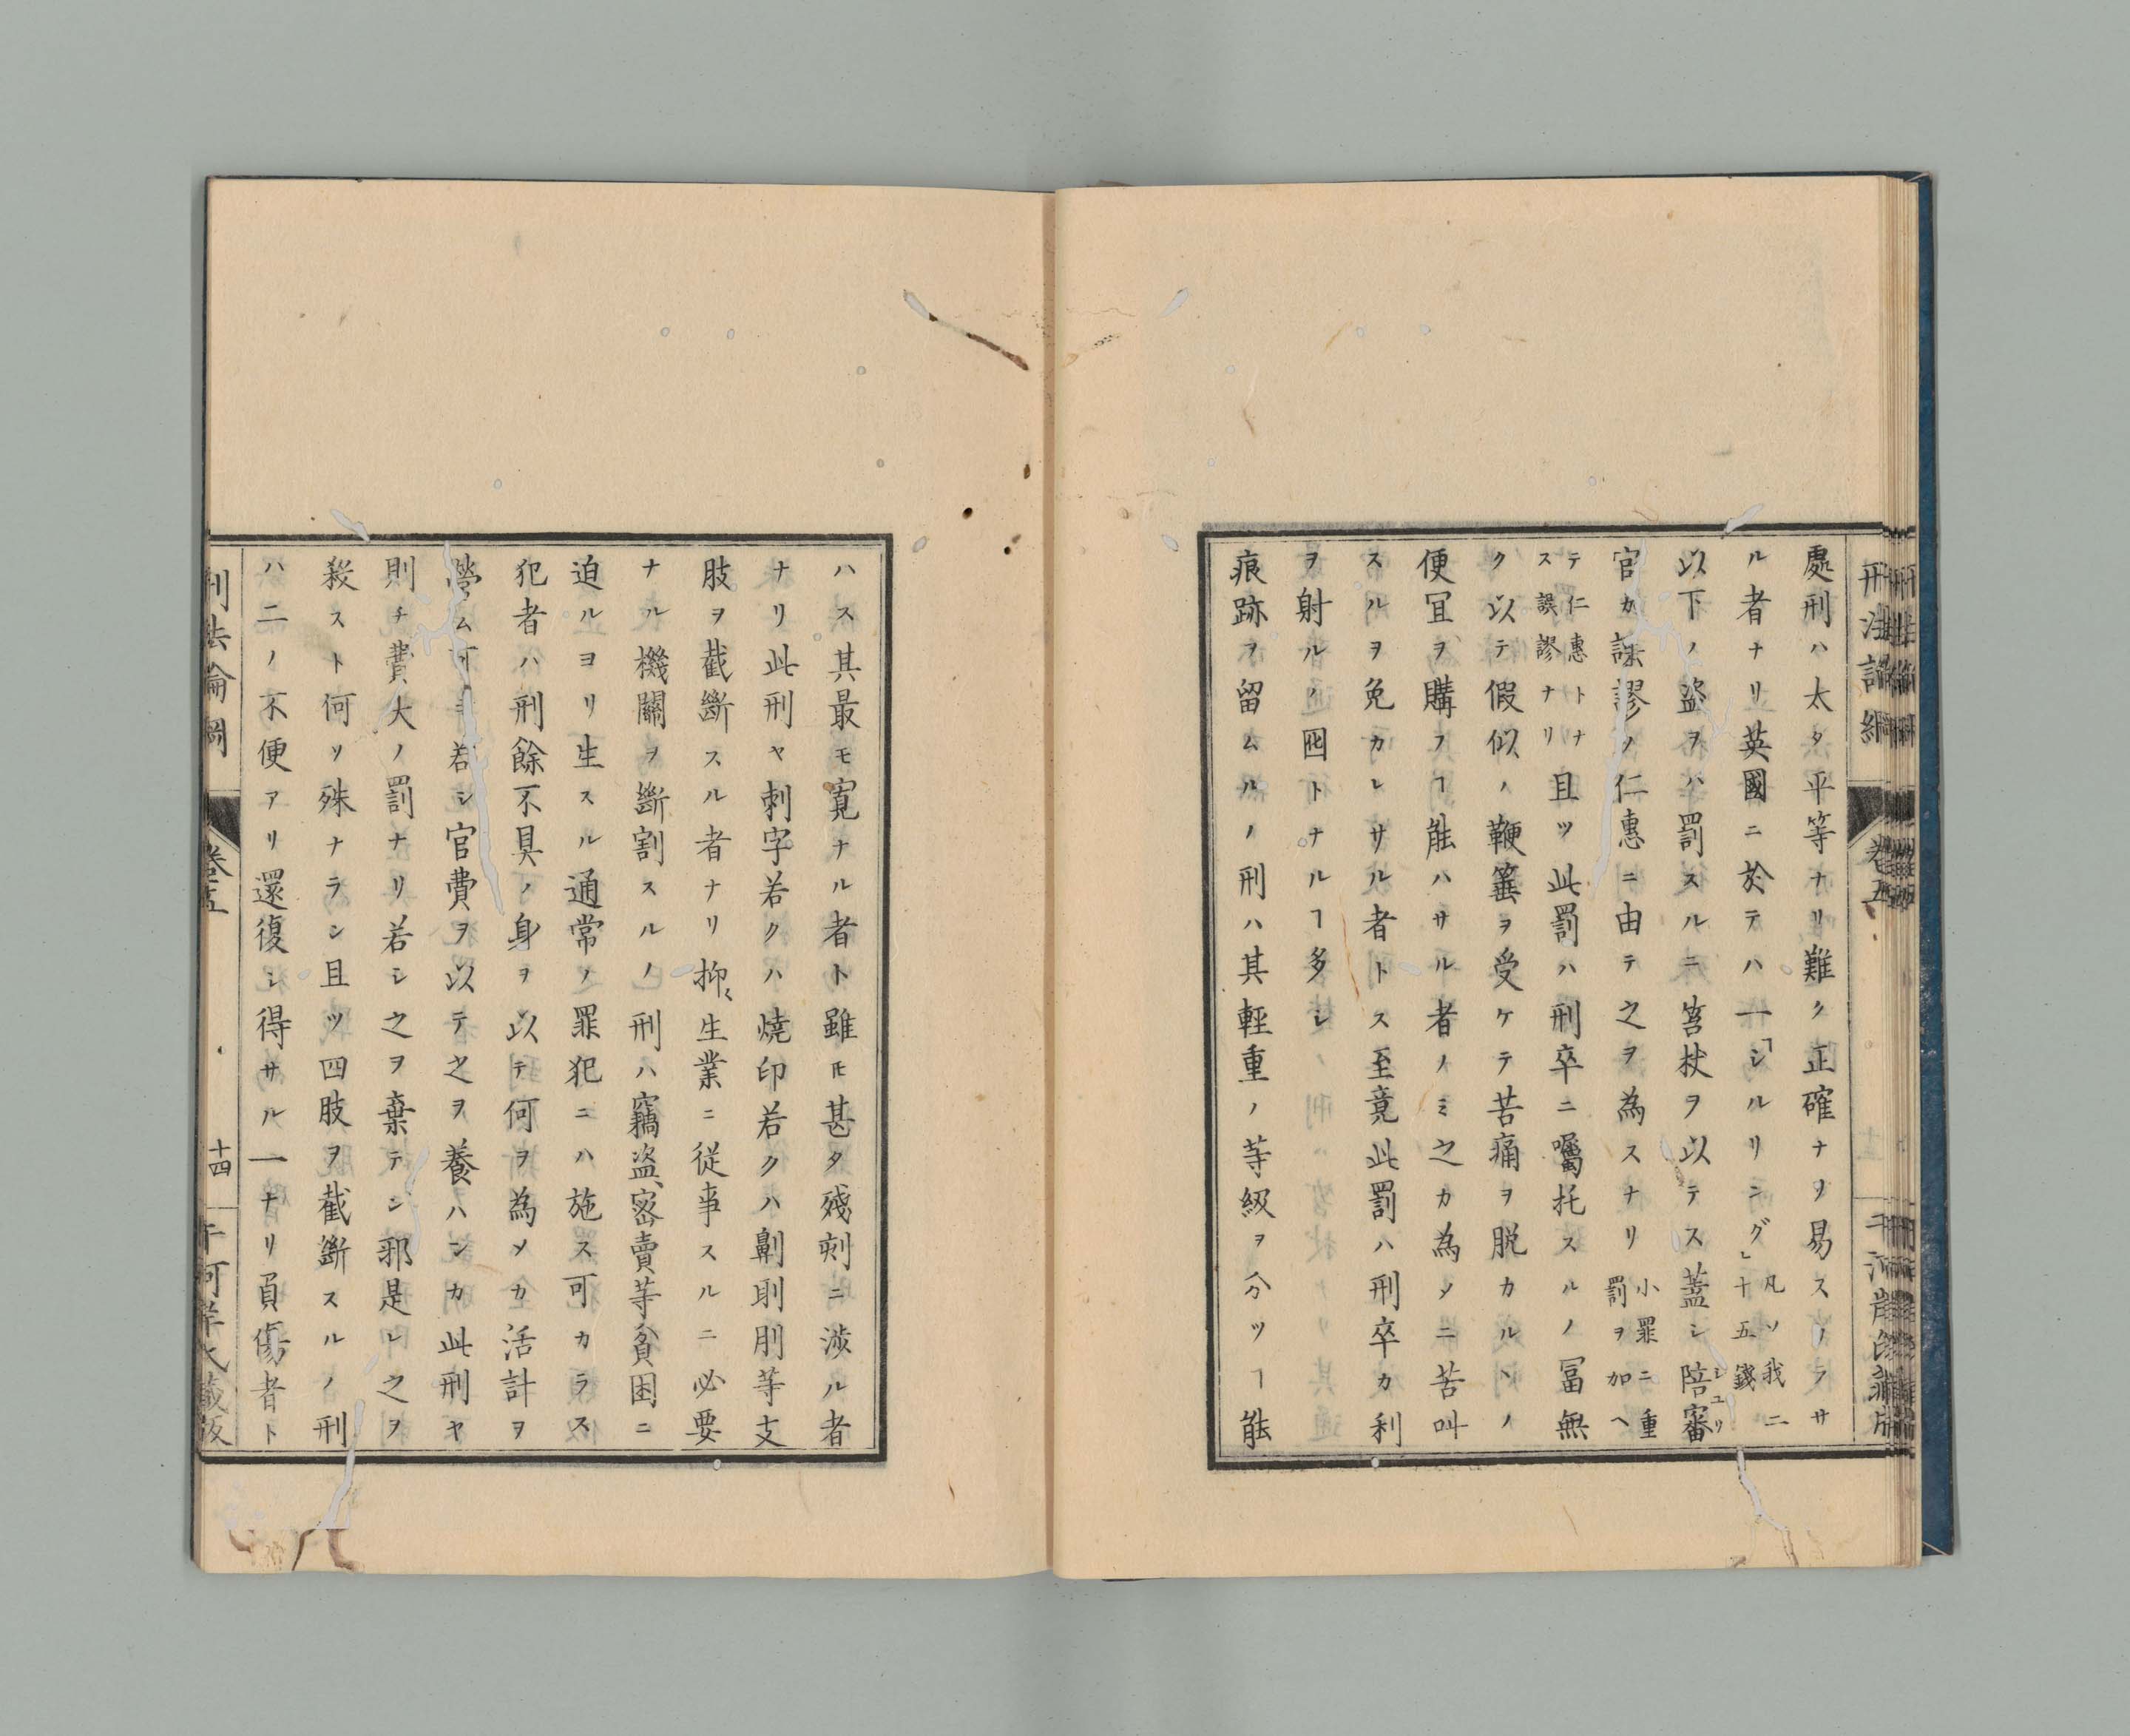 處刑ハ太タ平等ナリ難ク正確ナヲ易スノラサ
ル者ナリ英國ニ於テハ一「シルリニング」凡ソ我二十五錢
以下ノ盗ヲハ罰スルニ笞杖ヲ以テス蓋シ陪審シユリ
官カ誤謬ノ仁惠ニ由テ之ヲ為スナリ小罪ニ重罰ヲ加ヘ
テ仁惠トナス誤謬ナリ且ツ此罰ハ刑卒ニ囑托スルノ冨無
ク以テ假似ノ鞭箠ヲ受ケテ苦痛ヲ脱カルヽノ
便冝ヲ購フヿ能ハサル者ノミ之カ為メニ苦叫
スルヲ免カレサル者トス至竟此罰ハ刑卒カ利
ヲ射ルノ囮トナルヿ多シ
痕跡ヲ留ムルノ刑ハ其輕重ノ等級ヲ分ツヿ能
ハス其最モ寛ナル者ト雖𪜈甚タ殘刻ニ渉ル者
ナリ此刑ヤ刺字若クハ燒印若クハ劓刵刖等支
肢ヲ截斷スル者ナリ抑〻生業ニ従事スルニ必要
ナル機關ヲ斷割スルノ刑ハ竊盗密賣等貧困ニ
迫ルヨリ生スル通常ノ罪犯ニハ施ス可カラス
犯者ハ刑餘不具ノ身ヲ以テ何ヲ為メカ活計ヲ
營ム可キ若シ官費ヲ以テ之ヲ養ハンカ此刑ヤ
則チ費大ノ罰ナリ若シ之ヲ棄テンﾞ邪是レ之ヲ
殺スト何ソ殊ナラン且ツ四肢ヲ截斷スルノ刑
ハ二ノ不便アリ還復シ得サル一ナリ負傷者ト
刑法論綱
卷五
十四